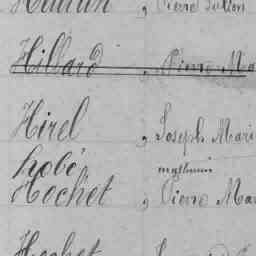 Hillard , Pierre Ma
Hirel , Joseph Mari
hobé mathurin
Hochet , Pierre Mar
Hochet